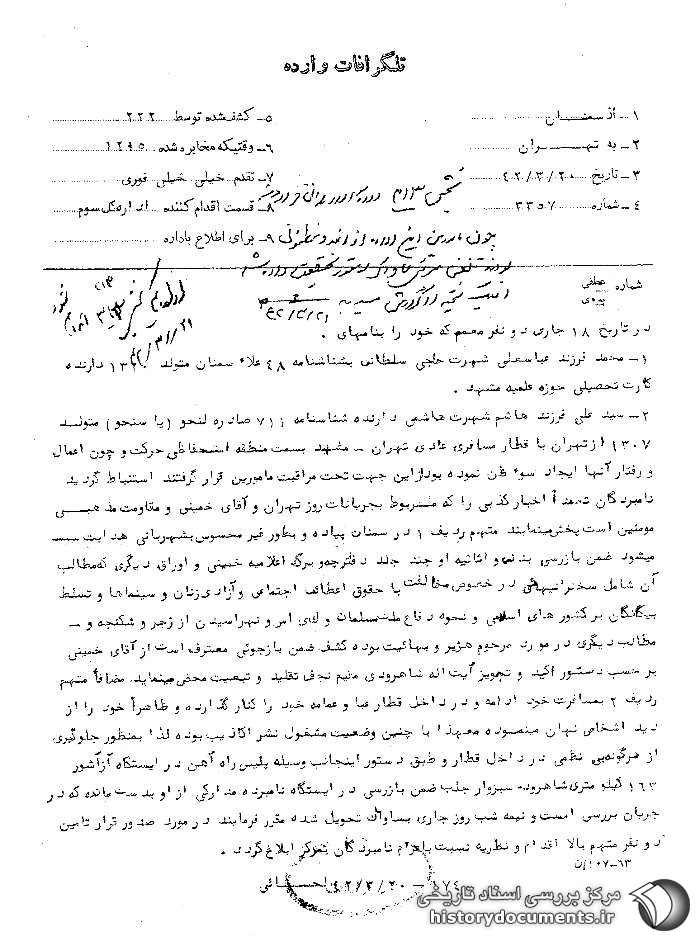 تلگرافات وارده
۱ـ از سمنان
۵ـ کشف شده توسط ۲۲۲
۲ـ به تهران
۶ـ وقتیکه مخابره شده ۱۲۹۵
۳ـ تاریخ ۴۲/۳/۲۰
۷ـ تقدم خیلی خیلی فوری
۴ـ شماره ۳۳۵۷
۸ـ قسمت اقدام کننده اداره کل سوم
۹ـ برای اطلاع باداره
شماره عطفی
پیروی
در تاریخ ۱۸ جاری دو نفر معمم که خود را بنامهای .
۱ـ محمد فرزند عباسعلی شهرت حاجی سلطانی بشناسنامه ۴۸ علاء سمنان متولد دارنده
کارت تحصیلی حوزه علمیه مشهد .
۲ـ سید علی فرزند هاشم شهرت هاشمی دارنده شناسنامه ۷۱۱ صادره لنحو (یا سنحو) متولد
۱۳۰۷ از تهران با قطار مسافری عادی تهران ـ مشهد بسمت منطقه استحفاظی حرکت و چون اعمال
و رفتار آنها ایجاد سوء ظن نموده بود از این جهت تحت مراقبت مامورین قرار گرفتند استنباط گردید
نامبردگان تعمداً اخبار کذبی را که مربوط بجریانات روز تهران و آقای خمینی و مقاومت مذهبی
مومنین است پخش مینمایند متهم ردیف ۱ در سمنان پیاده و بطور غیر محسوس بشهربانی هدایت
میشود ضمن بازرسی بدنی و اثاثیه او چند جلد دفترچه و برگه اعلامیه خمینی و اوراق دیگری که مطالب
آن شامل سخنرانیهائی در خصوص مخالفت با حقوق اعطائی اجتماعی و آزادی زنان و سینماها و تسلط
بیگانگان بر کشورهای اسلامی و نحوه دفاع ملت مسلمان و اولی امر و نهراسیدن از زجر و شکنجه و ـ
مطالب دیگری در مورد مرحوم هژیر و بهائیت بوده کشف ضمن بازجوئی معترف است از آقای خمینی
بر حسب دستور اکید و تجویز آیت اله شاهرودی مقیم نجف تقلید و تبعیت محض مینماید مضافاً متهم
ردیف ۲ بمسافرت خود ادامه و در داخل قطار عبا و عمامه خود را کنار گذارده و ظاهراً خود را از
دید اشخاص نهان مینموده معهذا با چنین وضعیت مشغول نشر اکاذیب بوده لذا بمنظور جلوگیری
از هرگونه بی نظمی در داخل قطار و طبق دستور اینجانب وسیله پلیس راه آهن در ایستگاه آزاد شور
۱۶۳ کیلو متری شاهرود ـ سبزوار جلب ضمن بازرسی در ایستگاه نامبرده مدارکی از او بدست مانده که در
جریان بررسی است و نیمه شب روز جاری بساواک تحویل شده مقرر فرمایند در مورد صدور قرار تامین
دو نفر متهم بالا اقدام و نظریه نسبت باعزام نامبردگان بمرکز ابلاغ گردد .
۱۷۴ ـ ۴۲/۳/۲۰
مرکز بررسی اسناد تاریخی
historydocuments.ir